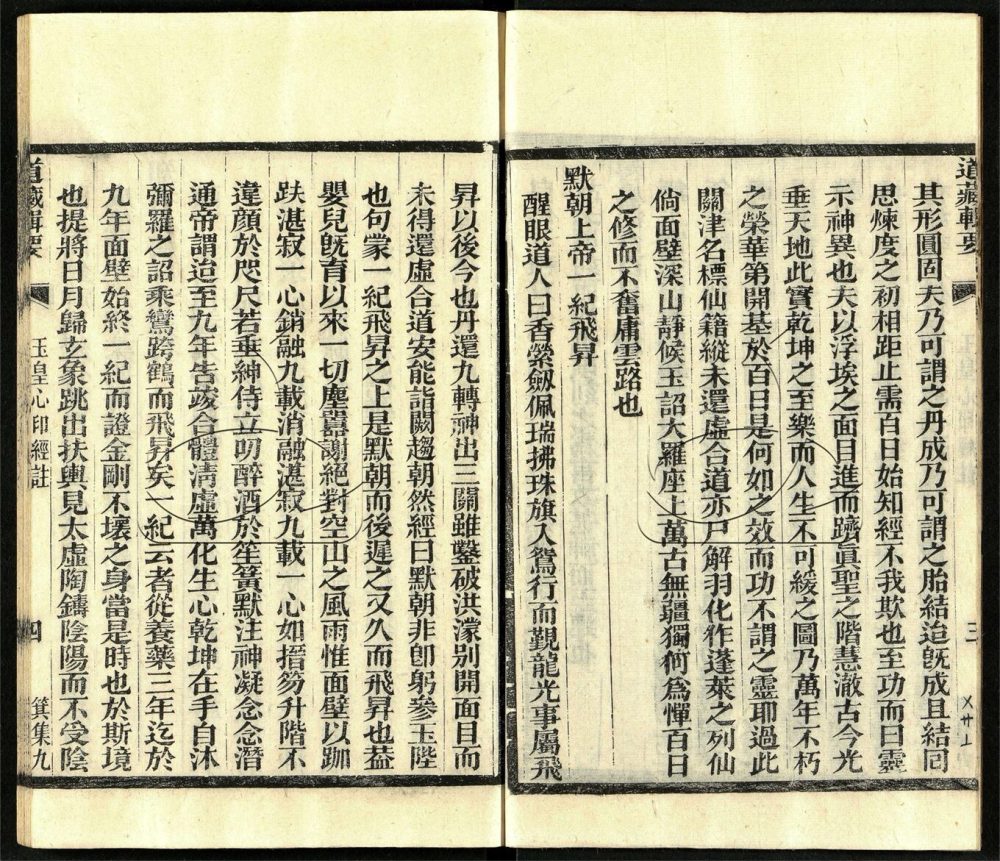 道藏輯要
三
其形圓固夫乃可謂之丹成乃可謂之胎結迨旣成且結回
思煉度之初相距止需百日始知經不我欺也至功而曰靈
示神異也夫以浮埃之面目進而躋眞聖之階慧澈古今光
垂天地此實乾坤之至樂而人生不可緩之圖乃萬年不朽
之榮華第開基於百日是何如之效而功不謂之靈耶過此
關津名標仙籍縱未還虛合道亦尸解羽化作蓬萊之列仙
倘面壁深山靜候玉詔大羅座上萬古無疆獨何爲憚百日
之修而不奮庸雲路也
默朝上帝一紀飛昇
醒眼道人曰香縈劔佩瑞拂珠旗入鴛行而覲龍光事屬飛
昇以後今也丹還九轉神出三關雖鑿破洪濛别開面目而
未得還虛合道安能詣闕趨朝然經曰默朝非卽躬參玉陛
也句蒙一紀飛昇之上是默朝而後遲之又久而飛昇也葢
嬰兒旣育以來一切塵囂謝絕對空山之風雨惟面壁以跏
趺湛寂一心銷融九載消融湛寂九載一心如搢笏升階不
違顏於咫尺若垂紳侍立叨醉酒於笙簧默注神凝念念潛
通帝謂迨至九年告竣合體淸虛萬化生心乾坤在手自沐
彌羅之詔乘鸞跨鶴而飛昇矣一紀云者從養藥三年迄於
九年面壁始終一紀而證金剛不壞之身當是時也於斯境
也提將日月歸玄象跳出扶輿見太虛陶鑄陰陽而不受陰
道藏輯要
玉皇心印經註
四
箕集九